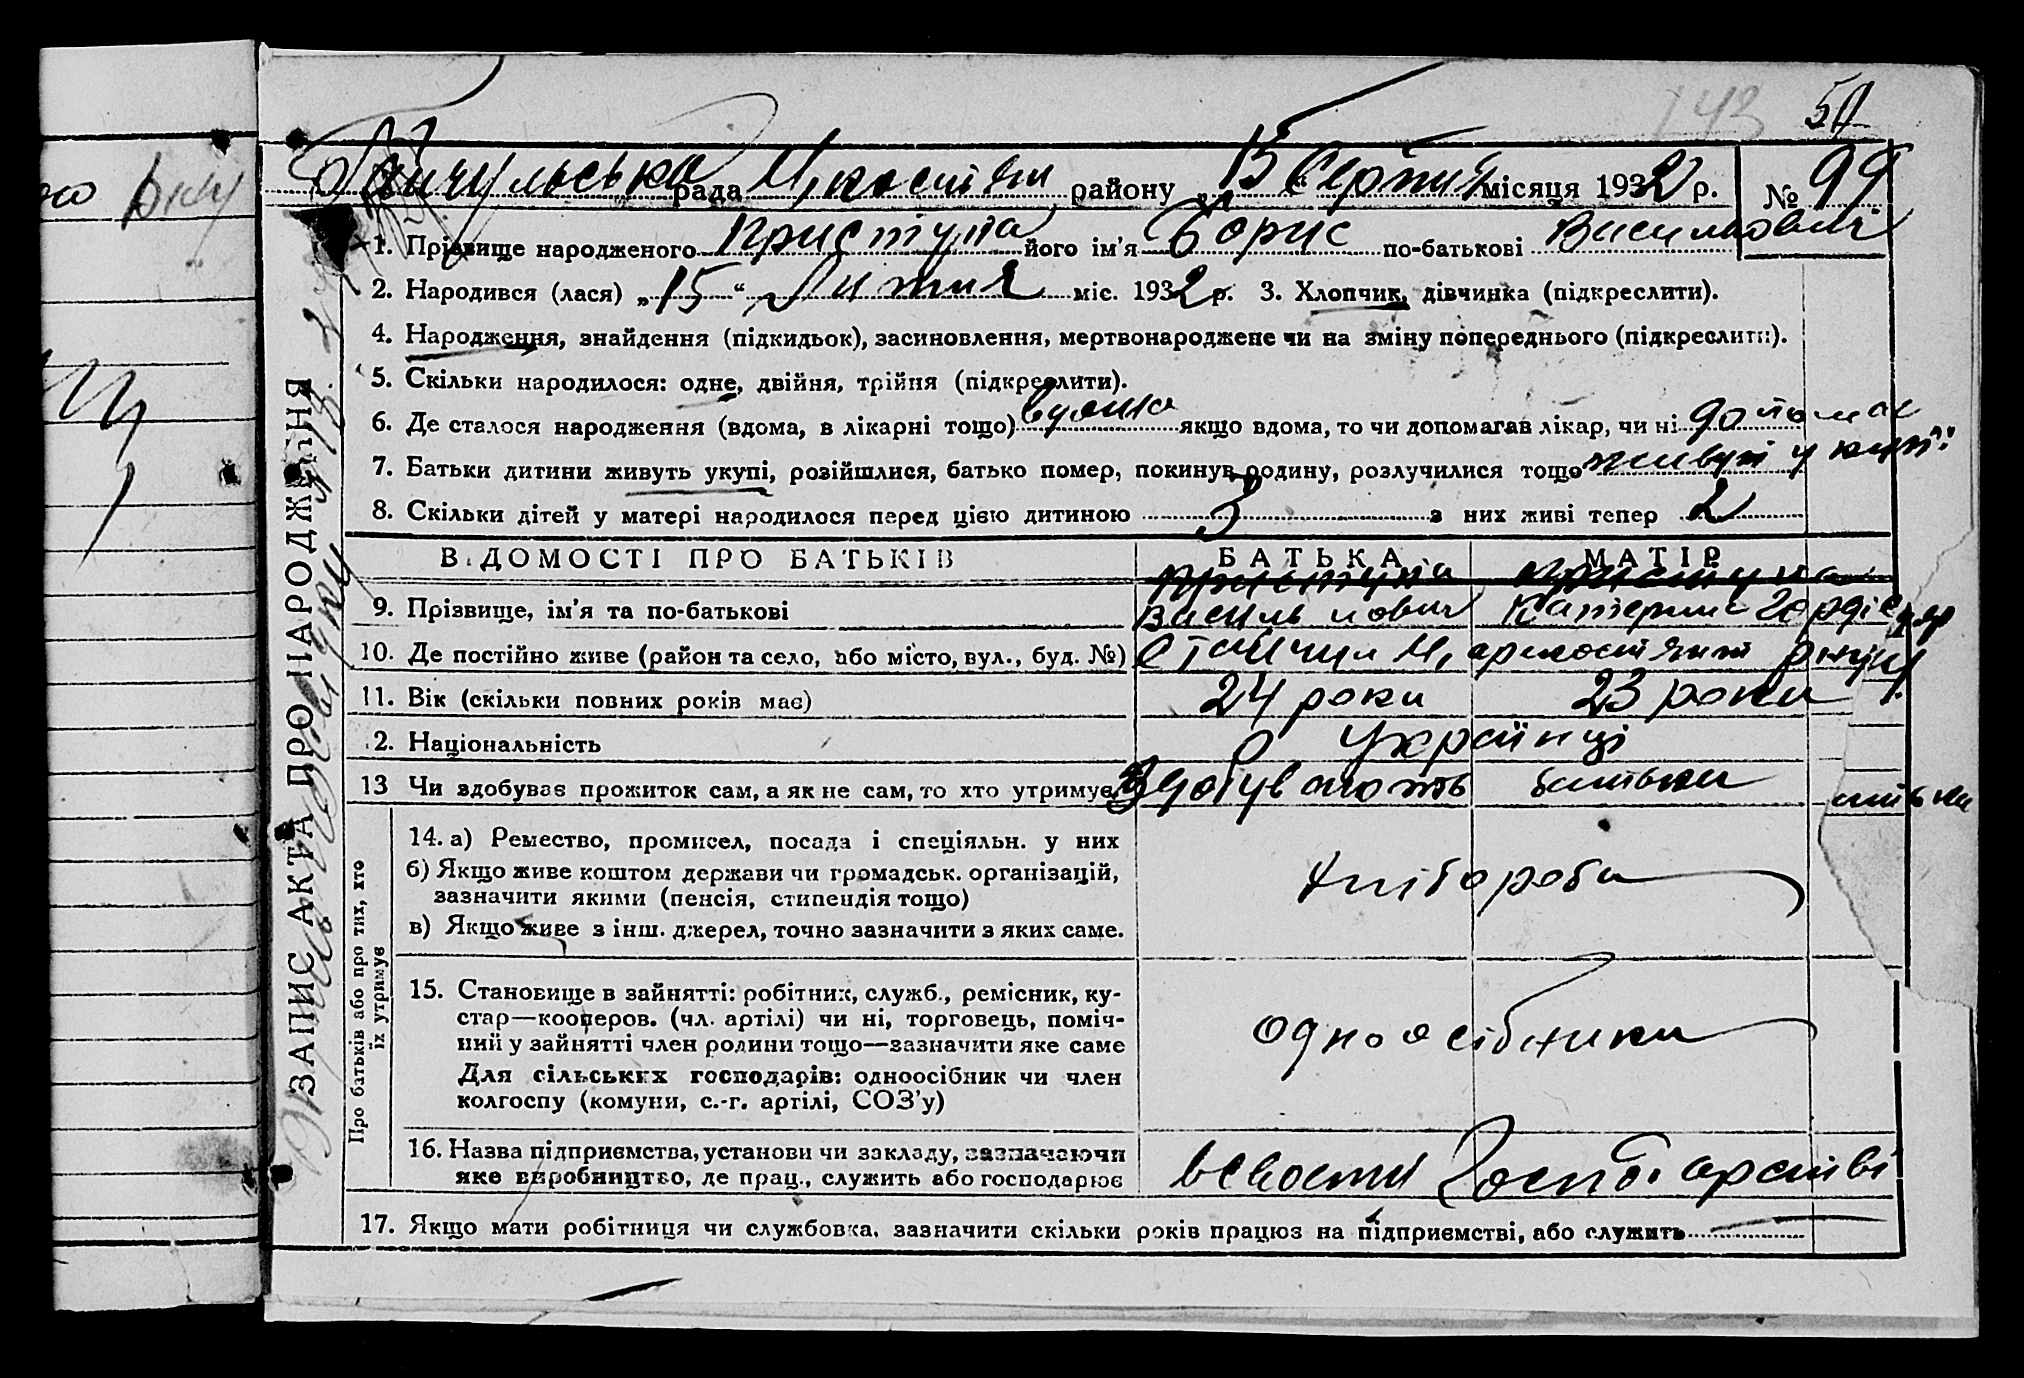 143 50
Гайчульська рада М, костян району „15“ Серпня місяця 1932 р. № 99
1. Прізвище народженого Приступа його ім'я Борис по-батькові Васильович
2. Народився (лася) „15“ Липня міс. 1932 р. 3. Хлопчик, дівчинка (підкреслити).
4. Народження, знайдення (підкидьок), засиновлення, мертвонароджене чи на зміну попереднього (підкреслити).
5. Скільки народилося: одне, двійня, трійня (підкреслити).
6. Де сталося народження (вдома, в лікарні тощо) вдома якщо вдома, то чи допомагав лікар, чи ні
7. Батьки дитини живуть укупі, розійшлися, батько помер, покинув родину, розлучилися тощо живуть у купі
8. Скільки дітей у матері народилося перед цією дитиною 3 з них живі тепер 2
ЗАПИС АКТА ПРО НАРОДЖЕННЯ
ВІДОМОСТІ ПРО БАТЬКІВ БАТЬКА МАТІР
Приступа Приступа
9. Прізвище, ім'я та по-батькові Василь Катерина
10. Де постійно живе (район та село, або місто, вул., буд. №)
11. Вік (скільки повних років має) 24 роки 23 роки
12. Національність Українці
13 Чи здобуває прожиток сам, а як не сам, то хто утримує Здобувають батьки
Про батьків або про тих, хто їх утримує
14. а) Ремество, промисел, посада і спеціяльн. у них
б) Якщо живе коштом держави чи громадськ. організацій,
зазначити якими (пенсія, стипендія тощо)
хлібороби
в) Якщо живе з інш. джерел, точно зазначити з яких саме.
15. Становище в зайнятті: робітник, служб., ремісник, ку-
стар—кооперов. (чл. артілі) чи ні, торговець, поміч-
ний у зайнятті член родини тощо—зазначити яке саме
одноосібники
Для сільських господарів: одноосібник чи член
колгоспу (комуни, с.-г. артілі, СОЗ'у)
16. Назва підприємства, установи чи закладу, зазначаючи
яке виробництво, де прац., служить або господарює
в своєму господарстві
17. Якщо мати робітниця чи службовка, зазначити скільки років працює на підприємстві, або служить